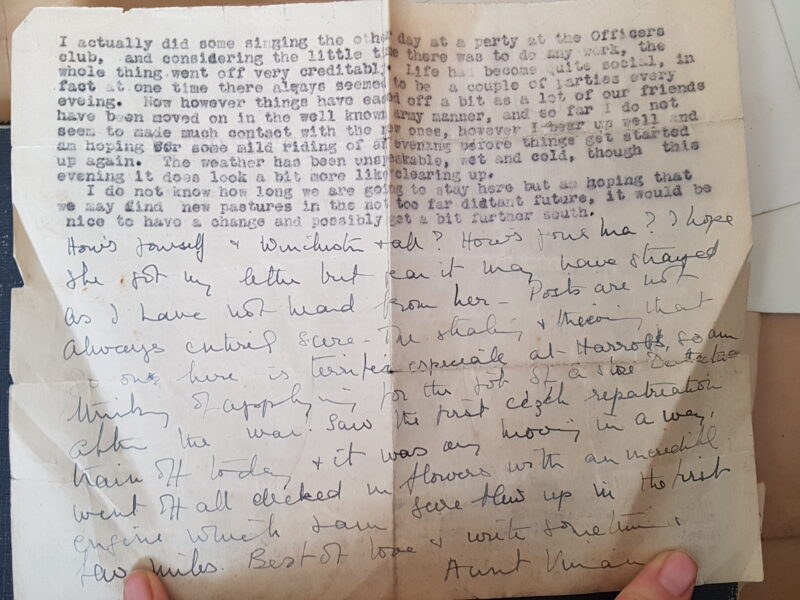 I actually did some singing the other day at a party at the Officers
club, and considering the little time there was to do any work, the
whole thing went off very creditably. Life has become quite social, in
fact at one time there always seemed to be a couple of parties every
eveing. Now however things have eased off a bit as a lot of our friends
have been moved on in the well known army manner, and so far I do not
seem to made much contact with the new ones, however I bear up well and
am hoping for some mild riding of an evening before things get started
up again. The weather has been unspeakable, wet and cold, though this
evening it does look a bit more like clearing up.
I do not know how long we are going to stay here but am hoping that
we may find new pastures in the not too far distant future, it would be
nice to have a change and possibly get a bit further south.
How's yourself & Winchester & all? How's your ma? I hope
she got my letter but fear it may have strayed
as I have not heard from her - Posts are not
always entirely secure - The stealing & thieving that
goes on here is terrific especially at Harrods, so am
thinking of applying for the job of a store Detective
after the war. Saw the first czech repatriation
train off today & it was any moving in a way,
went off all decked in flowers with an incredible
engine which I am sure blew up in the first
few miles. Best of love & write sometime.
Aunt Vivian